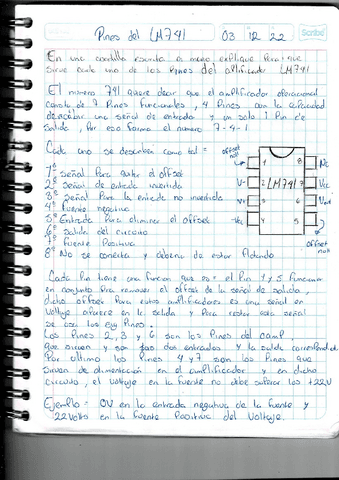 Pines del LM741 03 12 22 Scribe
En una cuartilla escrita a mano explique para que
sirve cada uno de los Pines del amplificador LM741
El numero 741 quiere decir que el amplificador operacional
consta de 7 Pines funcionales, 4 Pines con la capacidad
de recibir una señal de entrada y un solo 1 Pin de
Salida, Por eso forma el numero 7-4-1
Cada uno se describen como tal =
1° Señal Para quitar el offset
2° Señal de entrada invertida
3° señal Para la entrada no invertida
4° Fuente negativa
5° Entrada Para eliminar el offset
6° Salida del circuito
7° Fuente Positiva
8° No se conecta y debera de estar flotando
offset
null
1 8 Nc
V- 2 LM741 7 Vcc
V+ 3 6 Vout
-Vcc 4 5
offset
null
Cada Pin tiene una funcion que es= el Pin 1 y 5 funcionan
en conjunto Para remover el offset de la señal de salida,
dicho offset Para estos amplificadores es una señal en
Voltaje en la salida y Para restar esta señal
se usan los Pines.
Los Pines 2, 3 y 6 son los Pines del camp.
Que sirven y son las dos entradas y la salida
Por ultimo los Pines 4 y 7 son los Pines que
sirven de alimentación en el amplificador y en dicho
circuito, el voltaje en la fuente no debe los ±22V
Ejemplo = 0V en la entrada negativa de la fuente y
22 Volts en la fuente Positiva del Voltaje.